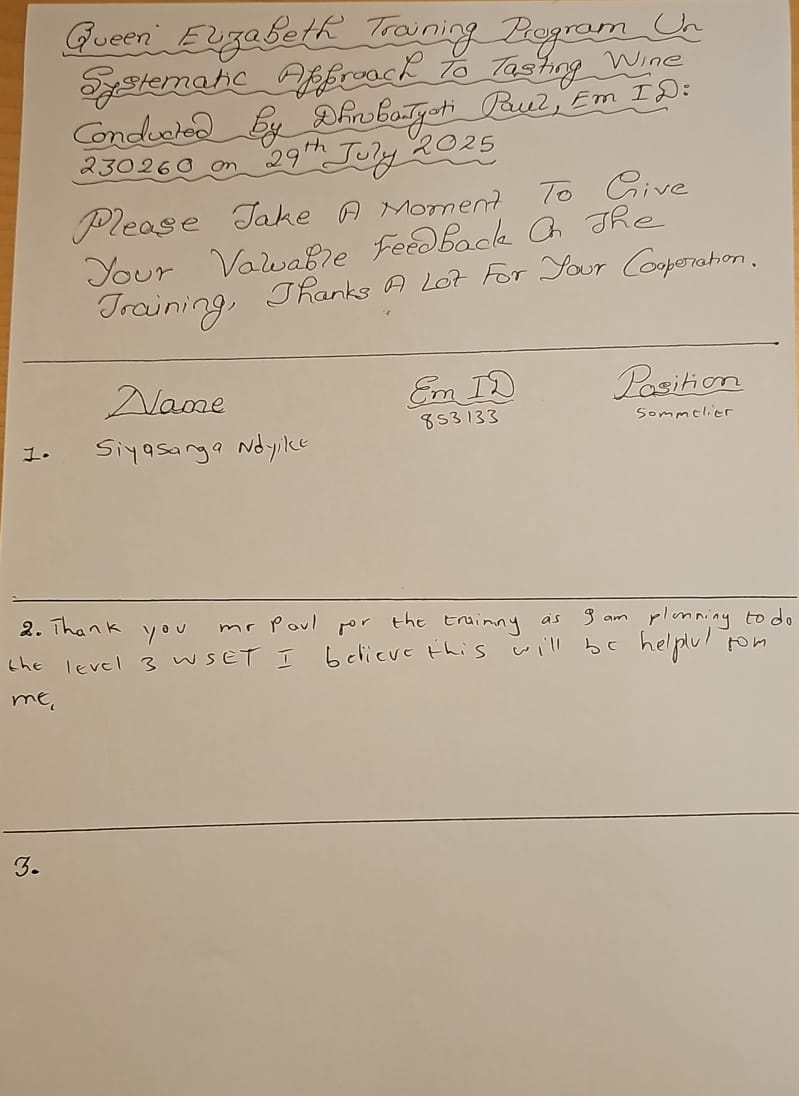 Queen Elizabeth Training Program On
Systematic Approach To Tasting Wine
Conducted By DhrubaJyoti Paul, Em ID:
230260 on 29th July 2025
Please Take A Moment To Give
Your Valuable FeedBack On The
Training, Thanks A Lot For Your Cooperation.
Name Em ID Position
853133 Sommelier
1. Siyasanga Ndyike
2. Thank you mr Paul for the training as I am planning to do
the level 3 WSET I believe this will be helpful for
me,
3.